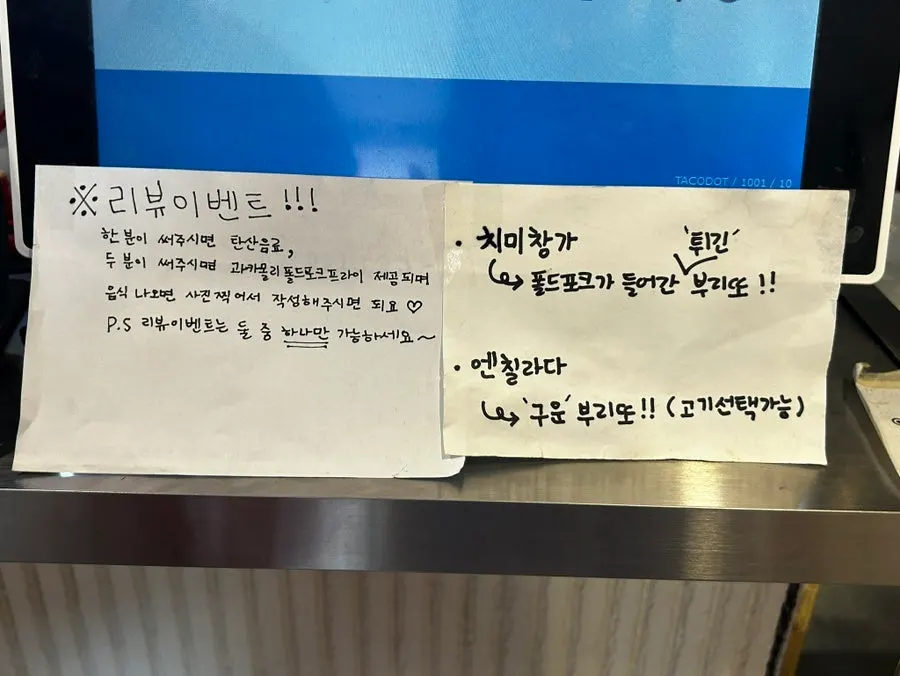 TACODOT / 1001 / 10
※ 리뷰이벤트 !!!
한 분이 써주시면 탄산음료,
두 분이 써주시면 과카몰리폴드포크프라이 제공되며
음식 나오면 사진찍어서 작성해주시면 되요 ♡
P.S 리뷰이벤트는 둘 중 하나만 가능하세요~
• 치미창가
↪ 폴드포크가 들어간 '튀긴' 부리또 !!
• 엔칠라다
↪ '구운' 부리또 !! (고기선택가능)